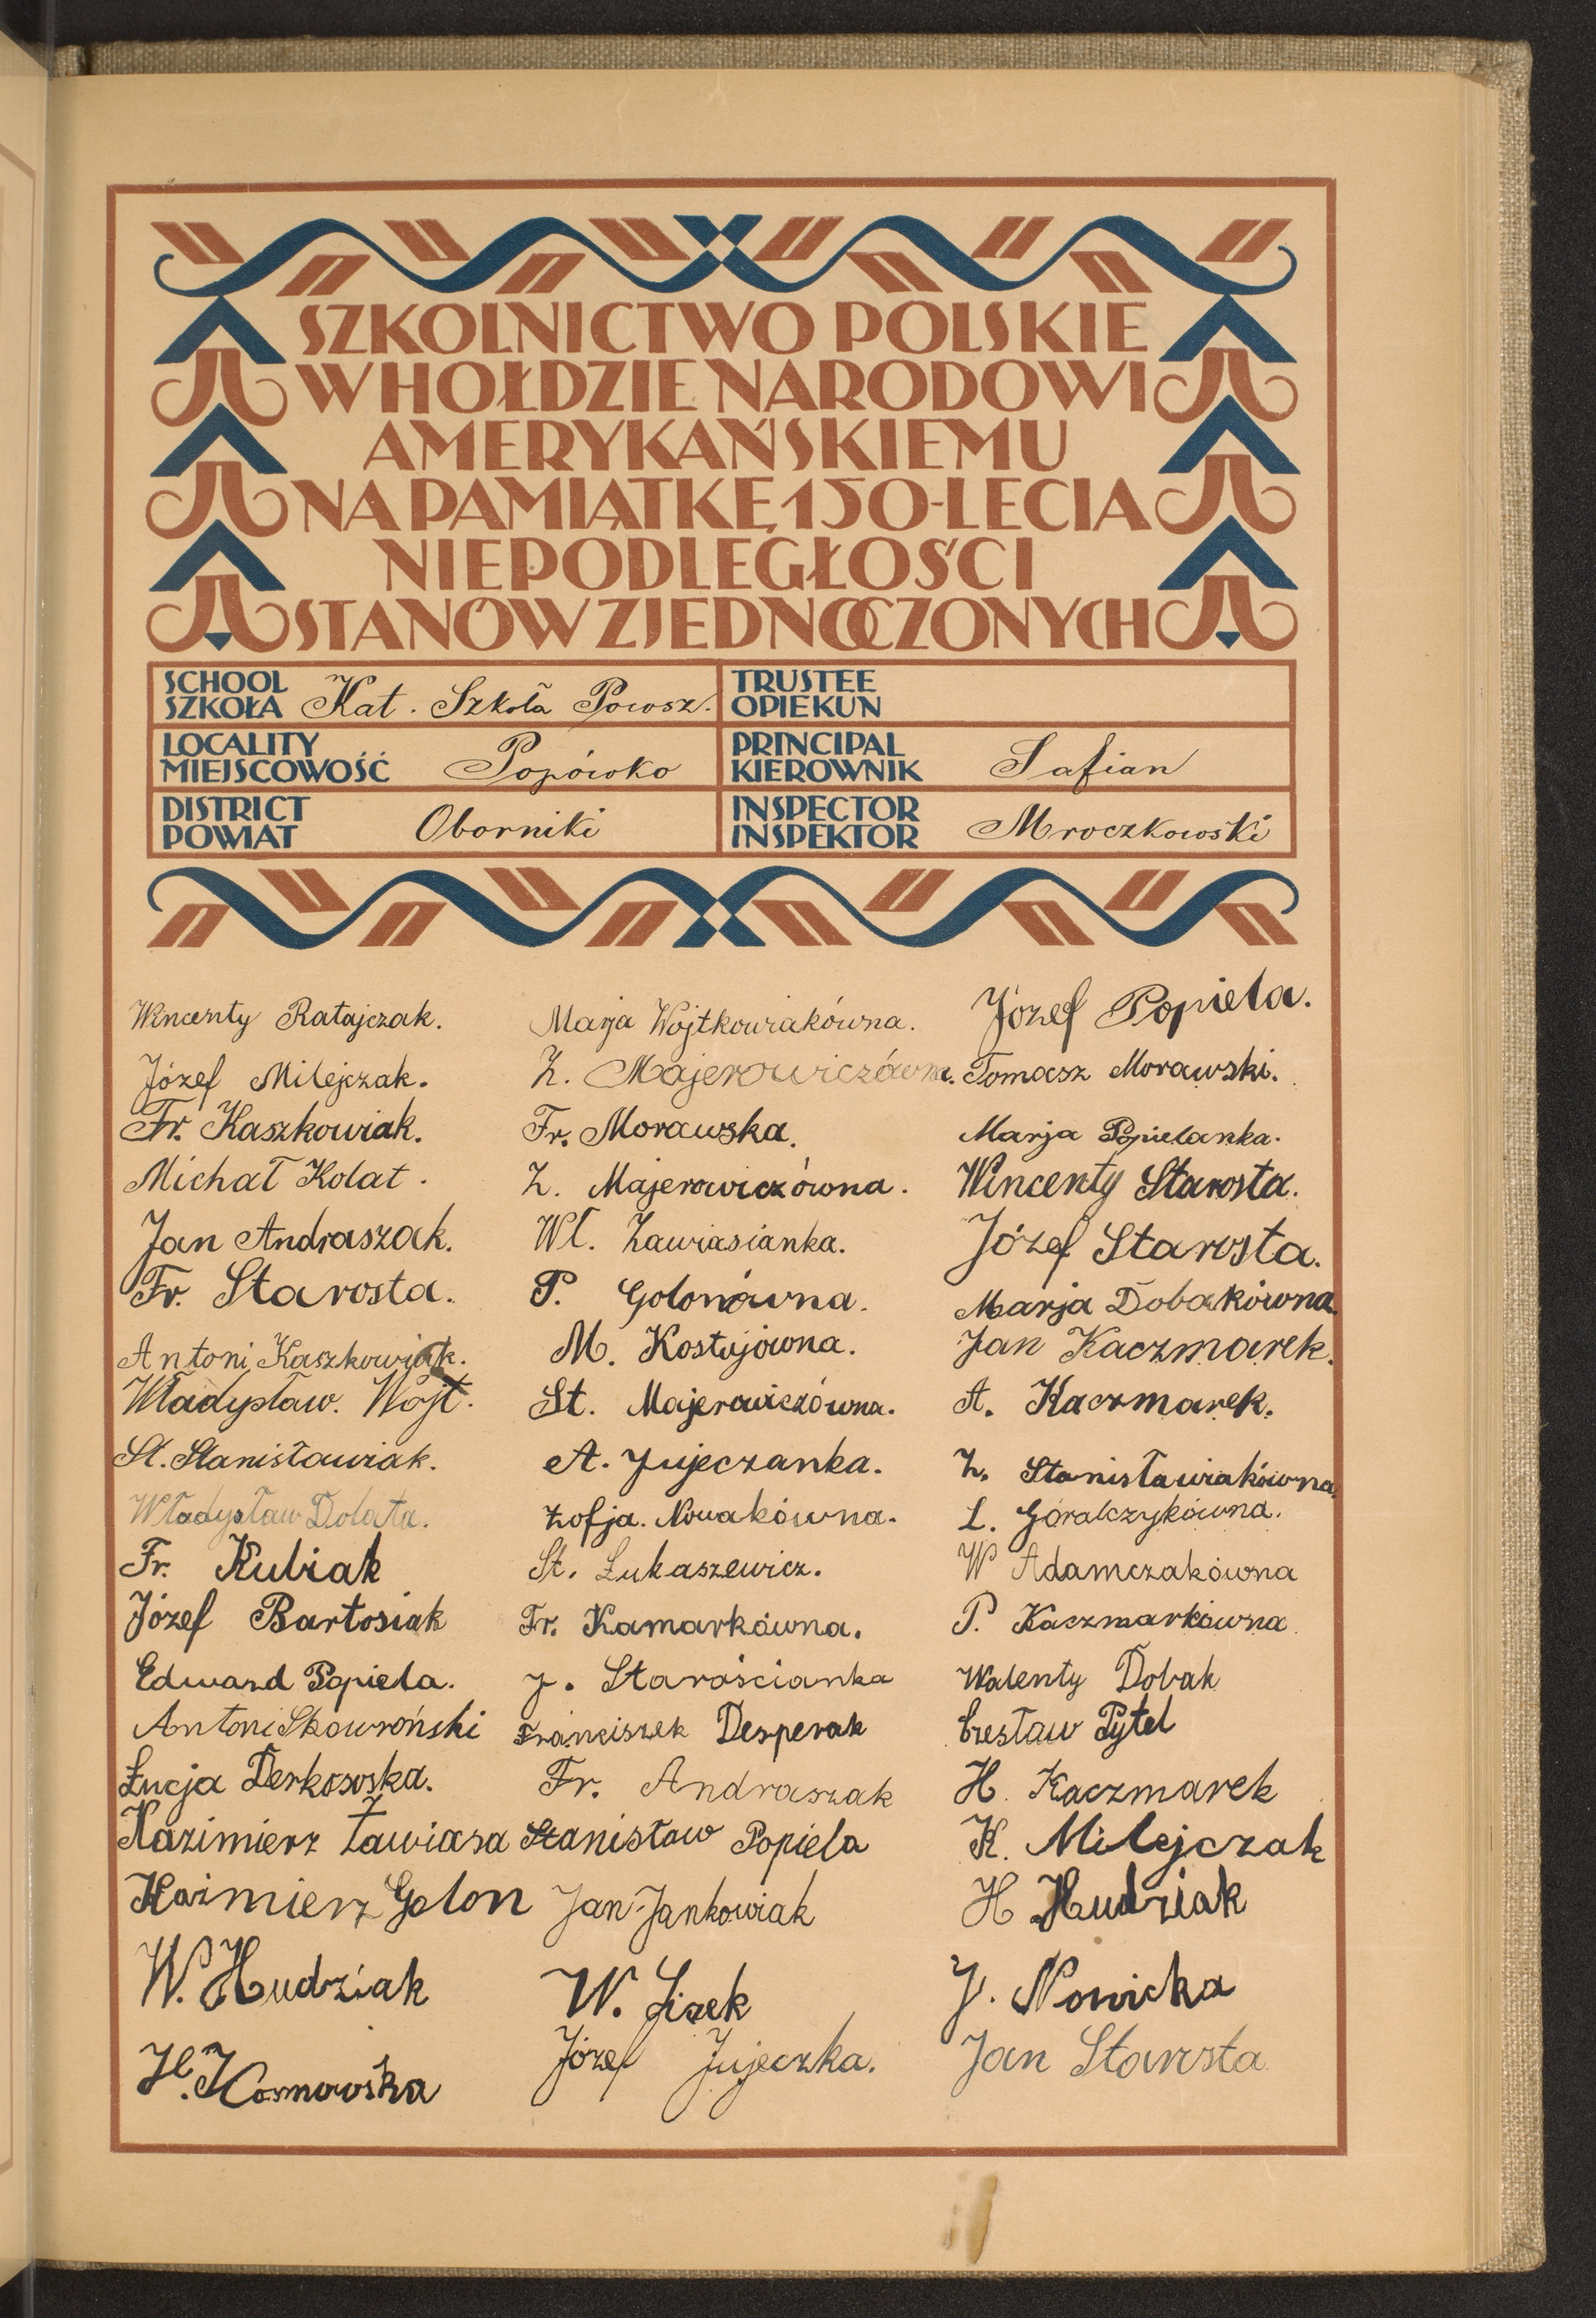 SZKOLNICTWO POLSKIE
W HOŁDZIE NARODOWI
AMERYKAŃSKIEMU
NA PAMIĄTKĘ 150-LECIA
NIEPODLEGŁOŚCI
STANÓW ZJEDNOCZONYCH
SCHOOL
SZKOŁA Kat. Szkoła Powsz.
TRUSTEE
OPIEKUN
LOCALITY
MIEJSCOWOŚĆ Popówko
PRINCIPAL
KIEROWNIK Safian
DISTRICT
POWIAT Oborniki
INSPECTOR
INSPEKTOR Mroczkowski
Wincenty Ratajczak.
Józef Milejczak.
Fr. Kaszkowiak.
Michał Kolat.
Jan Andraszak.
Fr. Starosta.
Antoni Kaszkowiak.
Władysław. Wojt.
St. Stanisławiak.
Władysław Dolata.
Fr. Kubiak
Józef Bartosiak
Edward Popiela.
Antoni Skowroński
Łucja Derkososka.
Kazimierz Zawiasa
Kaźmierz Golon
W. Hudziak
H. Kosmowska
Marja Wojtkowiakówna.
Z. Majerowiczówna.
Fr. Morawska.
Z. Majerowiczówna.
Wł. Zawiasianka.
P. Golonówna.
M. Kostujówna.
St. Majerowiczówna.
A. Jujeczanka.
Zofja. Nowakówna.
St. Łukaszewicz.
Fr. Kamarkówna.
J. Starościanka
Franciszek Desperak
Fr. Andraszak
Stanisław Popiela
Jan Jankowiak
W. Jizek
Józef Jujeczka.
Józef Popiela.
Tomasz Morawski.
Marja Popielanka.
Wincenty Starosta.
Józef Starosta.
Marja Dobakówna.
Jan Kaczmarek.
A. Kaczmarek.
Z. Stanisławiakówna.
L. Góralczykówna.
W Adamczakówna
P. Kaczmarkówna
Walenty Dobak
Czesław Pytel
H. Kaczmarek
K. Milejczak
H Hudziak
J. Nowicka
Jan Starosta